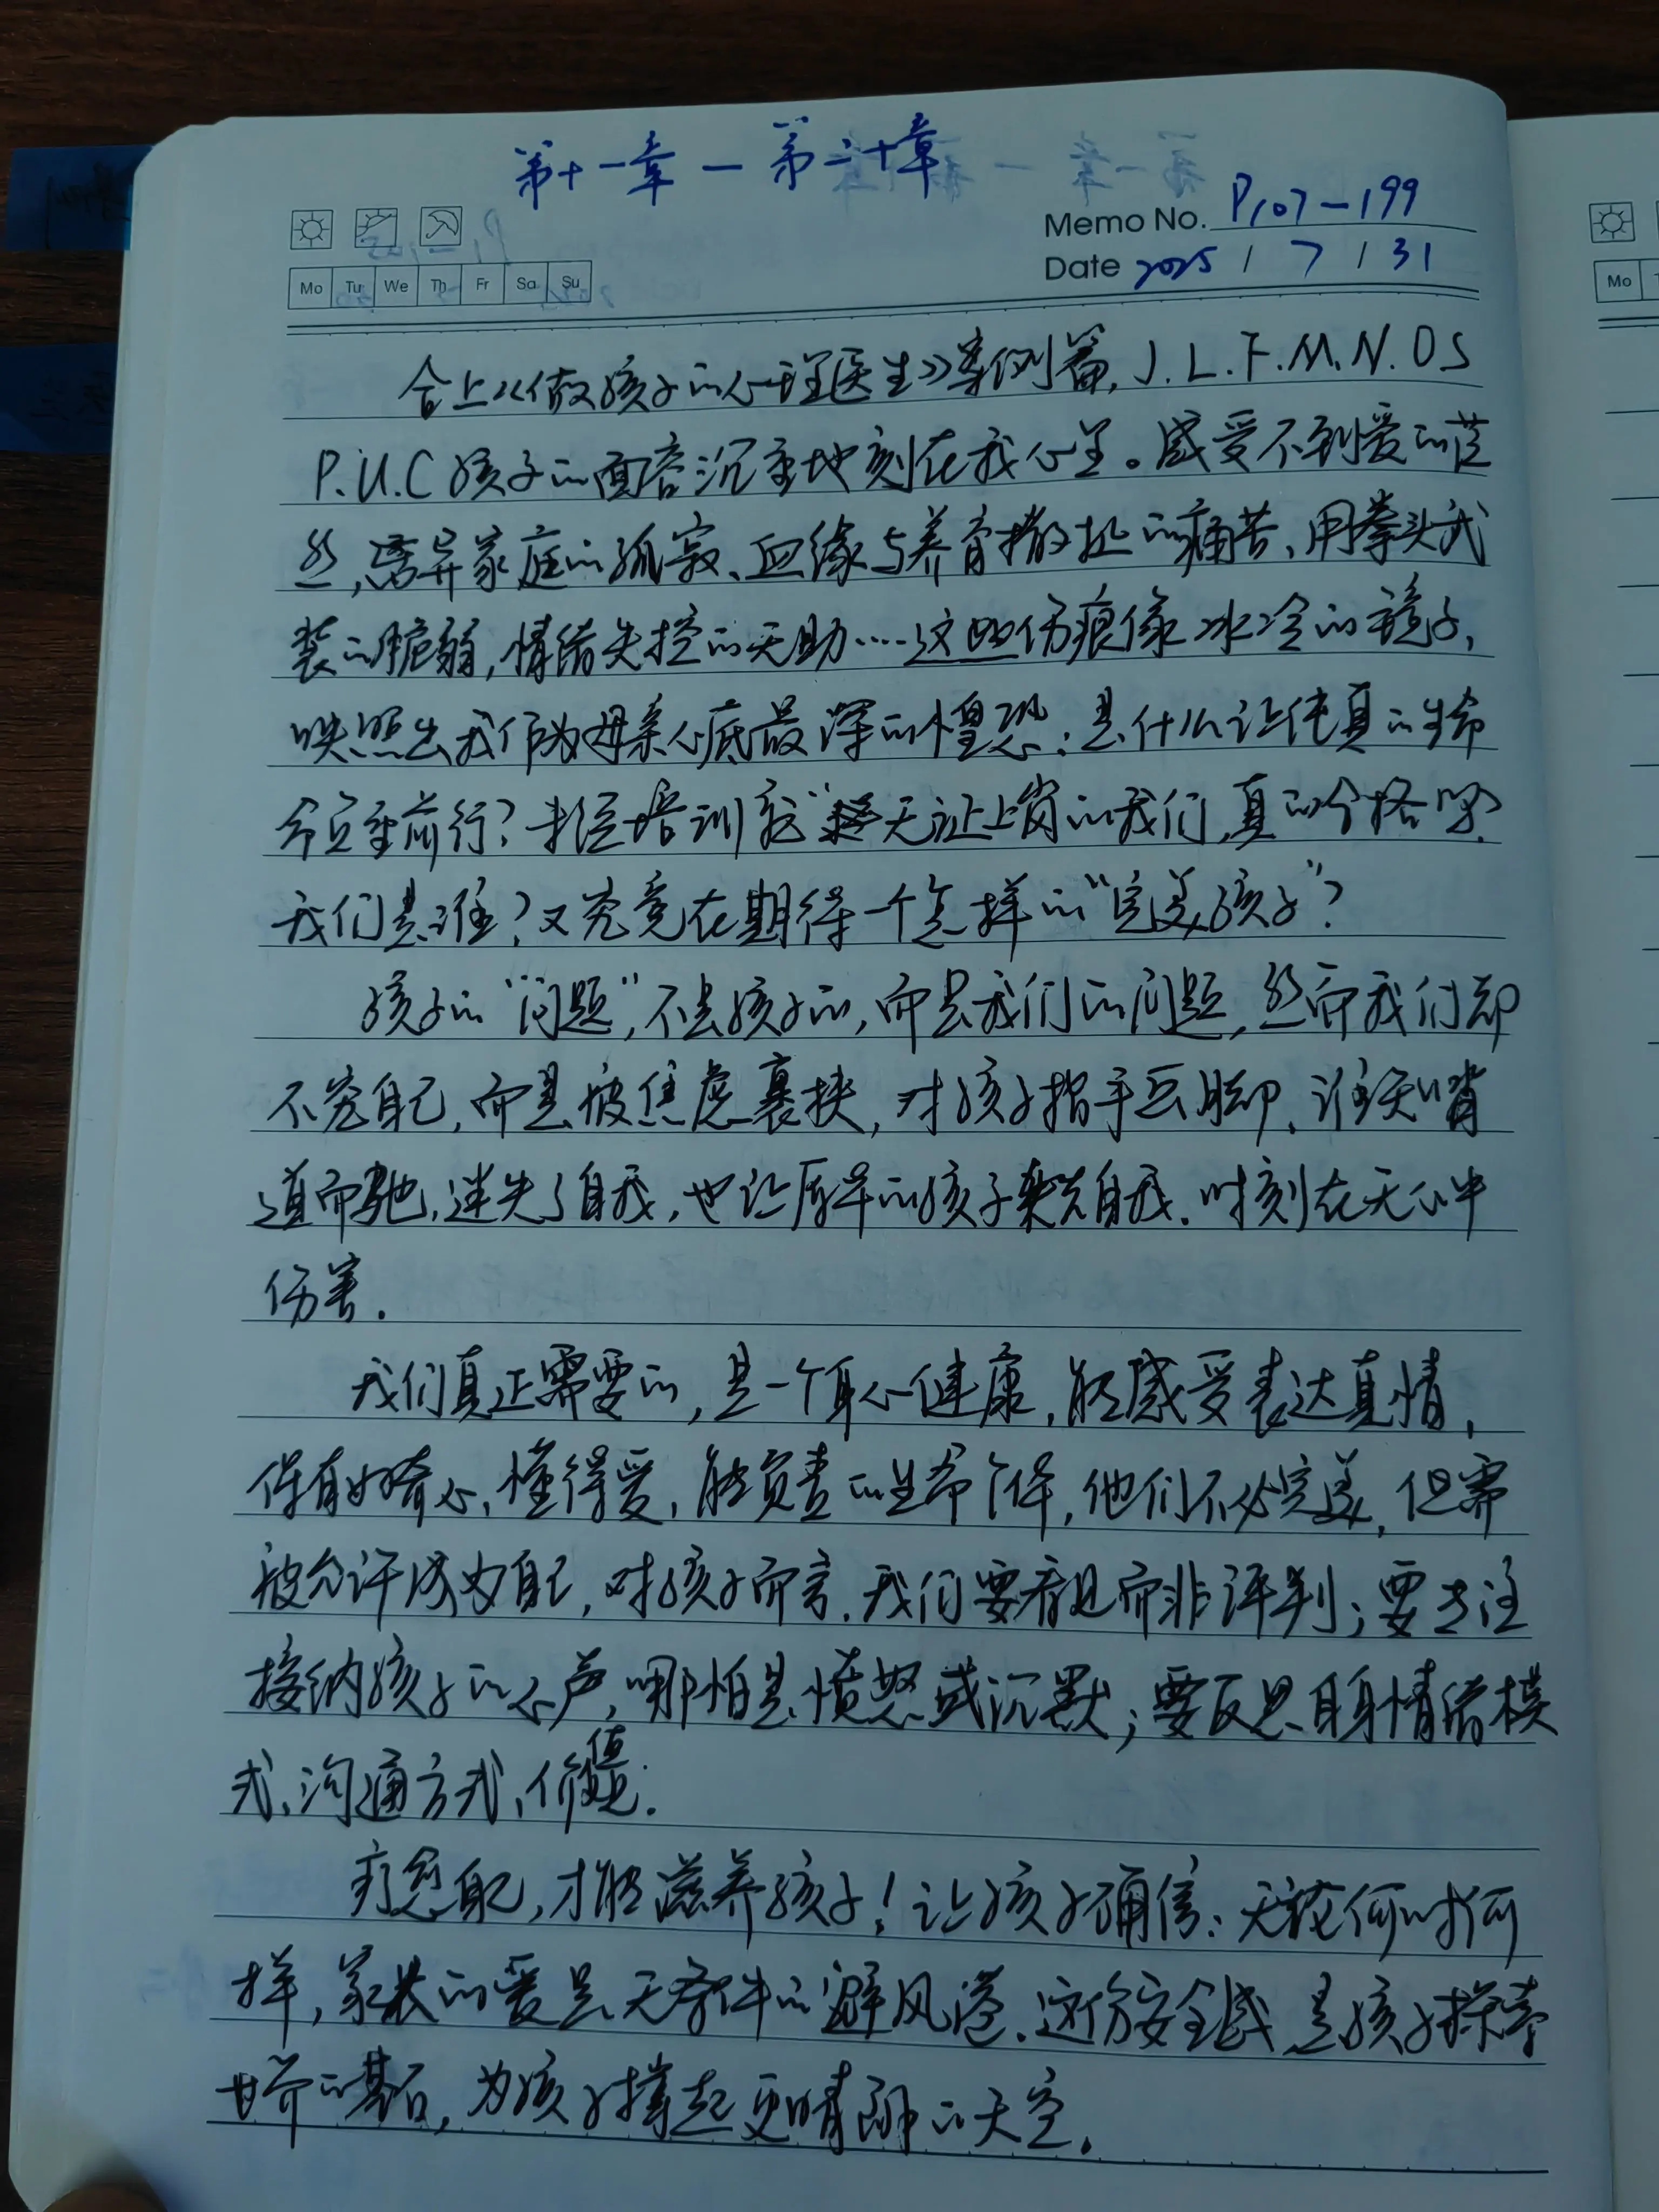 第十一章 — 第二十章
Memo No. P107-199
Date 2025 / 7 / 31
Mo Tu We Th Fr Sa Su
合上《做孩子的心理医生》案例篇, J. L. F. M. N. O S
P. U. C 孩子的面容沉重地刻在我心里。感受不到爱的茫
然, 离异家庭的孤寂、血缘与养育撕扯的痛苦、用拳头武
装的脆弱, 情绪失控的无助……这些伤痕像冰冷的镜子,
映照出我作为母亲心底最深的惶恐: 是什么让纯真的生命
负重前行? 未经培训就“无证上岗的我们, 真的合格吗?
我们是谁? 又究竟在期待一个怎样的“完美孩子”?
孩子的“问题”, 不是孩子的, 而是我们的问题, 然而我们却
不究自己, 而是被焦虑裹挟, 对孩子指手画脚, 背
道而驰, 迷失了自我, 也让原本的孩子丧失自我. 时刻在无心中
伤害.
我们真正需要的, 是一个身心健康, 能感受表达真情,
保有好奇心, 懂得爱, 能负责的生命个体, 他们不必完美, 但需
被允许成为自己, 对孩子而言, 我们要看见而非评判; 要专注
接纳孩子的心声, 哪怕是愤怒或沉默; 要反思自身情绪模
式, 沟通方式, 价值.
疗愈自己, 才能滋养孩子! 让孩子确信: 无论何时何
样, 家长的爱是无条件的避风港. 这份安全感是孩子探索
世界的基石, 为孩子撑起更晴朗的天空.
Mo